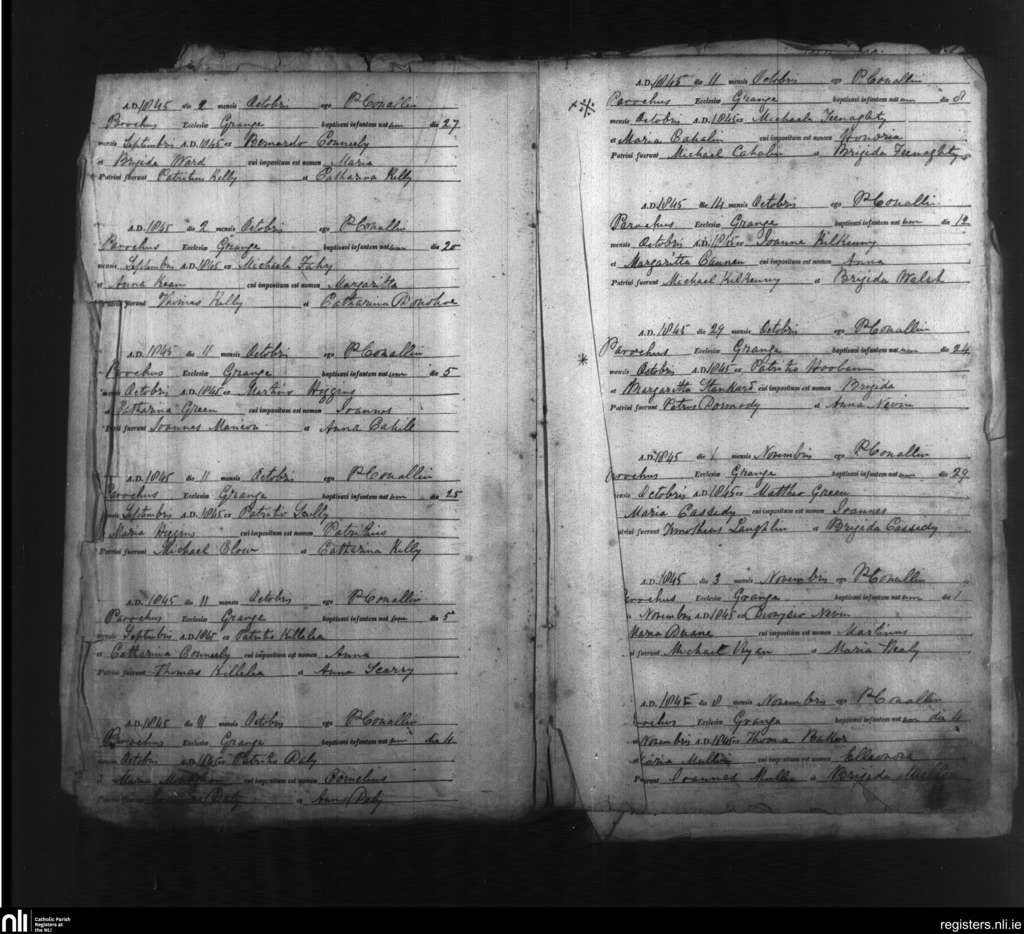 A.D. 1845 die 2 mensis Octobris ego P Conallin
Parochus Ecclesiæ Grange baptizavi infantem natam die 27
mensis Septembris A.D. 1845 ex Bernardo Conneely
et Brigida Ward cui impositum est nomen Maria
Patrini fuerunt Patritius Kelly et Catharina Kelly
A.D. 1845 die 2 mensis Octobris ego P Conallin
Parochus Ecclesiæ Grange baptizavi infantem natam die 20
mensis Septembris A.D. 1845 ex Michaele Fahey
et Anna Kean cui impositum est nomen Margaritta
fuerunt Thomas Kelly et Catharina Donohoe
A.D. 1845 die 11 mensis Octobris ego P Conallin
Parochus Ecclesiæ Grange baptizavi infantem natum die 5
mensis Octobris A.D. 1845 ex Martino Higgins
et Catharina Green cui impositum est nomen Joannes
Patrini fuerunt Joannes Manion et Anna Cahill
A.D. 1845 die 11 mensis Octobris ego P Conallin
Parochus Ecclesiæ Grange baptizavi infantem natum die 25
mensis Septembris A.D. 1845 ex Patritio Scully
Maria Higgins cui impositum est nomen Patritius
Patrini fuerunt Michael Clow et Catharina Kelly
A.D. 1845 die 11 mensis Octobris ego P Conallin
Parochus Ecclesiæ Grange baptizavi infantem natam die 5
mensis Septembris A.D. 1845 ex Patritio Killelea
et Catharina Conneely cui impositum est nomen Anna
Patrini fuerunt Thomas Killelea et Anna Scarry
A.D. 1845 die 11 mensis Octobris ego P Conallin
Parochus Ecclesiæ Grange baptizavi infantem natum die 4
mensis Octobris A.D. 1845 ex Patritio Daly
Maria cui impositum est nomen Cornelius
Patrini fuerunt Daly et Anna Daly
A.D. 1845 die 11 mensis Octobris ego P Conallin
Parochus Ecclesiæ Grange baptizavi infantem natam die 8
mensis Octobris A.D. 1845 ex Michaele Feenaghty
et Maria Cahalin cui impositum est nomen Honoria
Patrini fuerunt Michael Cahalin et Brigida Feenaghty
A.D. 1845 die 14 mensis Octobris ego P Conallin
Parochus Ecclesiæ Grange baptizavi infantem natam die 12
mensis Octobris A.D. 1845 ex Joanne Kilkenny
et Margaritta Cannon cui impositum est nomen Anna
Patrini fuerunt Michael Kilkenny et Brigida Walsh
A.D. 1845 die 29 mensis Octobris ego P Conallin
Parochus Ecclesiæ Grange baptizavi infantem natam die 24
mensis Octobris A.D. 1845 ex Patritio Hoobann
et Margaritta Stankard cui impositum est nomen Brigida
Patrini fuerunt Petrus Dormody et Anna Nevin
A.D. 1845 die 1 mensis Novembris ego P Conallin
Parochus Ecclesiæ Grange baptizavi infantem natum die 29
mensis Octobris A.D. 1845 ex Mattheo Green
Maria Cassedy cui impositum est nomen Joannes
Patrini fuerunt Timotheus Laughlin et Brigida Cassedy
A.D. 1845 die 3 mensis Novembris ego P Conallin
Parochus Ecclesiæ Grange baptizavi infantem natum die 1
Novembris A.D. 1845 ex Dionysio Nevin
Maria Duane cui impositum est nomen Martinus
fuerunt Michael Ryan et Maria Healy
A.D. 1845 die 8 mensis Novembris ego P Conallin
Parochus Ecclesiæ Grange baptizavi infantem natam die 4
Novembris A.D. 1845 ex Thoma Baker
Maria Mullin cui impositum est nomen Elleonora
Patrini fuerunt Joannes et Brigida
nli Catholic Parish
Registers at
the NLI
registers.nli.ie